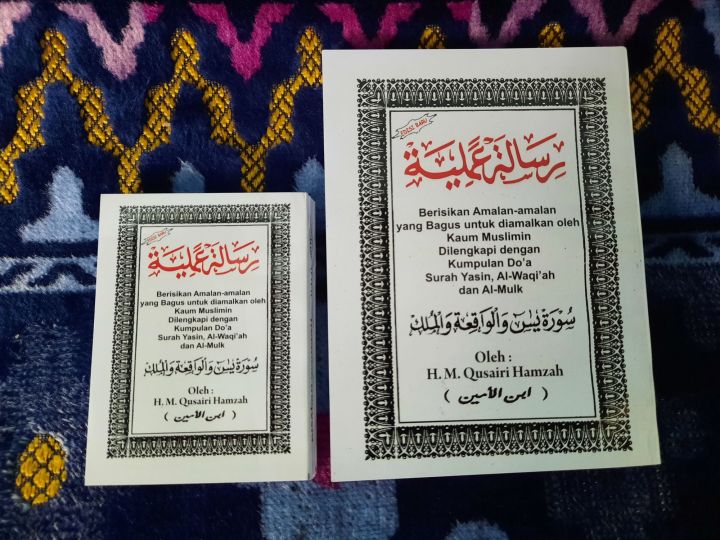 EDISI BARU
رِسَالَة عَمَلِيَّة
Berisikan Amalan-amalan
yang Bagus untuk diamalkan oleh
Kaum Muslimin
Dilengkapi dengan
Kumpulan Do'a
Surah Yasin, Al-Waqi'ah
dan Al-Mulk
سُوْرَة يٰسٓ وَالْوَاقِعَة وَالْمُلْك
Oleh :
H. M. Qusairi Hamzah
( ابن الأمين )
EDISI BARU
رِسَالَة عَمَلِيَّة
Berisikan Amalan-amalan
yang Bagus untuk diamalkan oleh
Kaum Muslimin
Dilengkapi dengan
Kumpulan Do'a
Surah Yasin, Al-Waqi'ah
dan Al-Mulk
سُوْرَة يٰسٓ وَالْوَاقِعَة وَالْمُلْك
Oleh :
H. M. Qusairi Hamzah
( ابن الأمين )